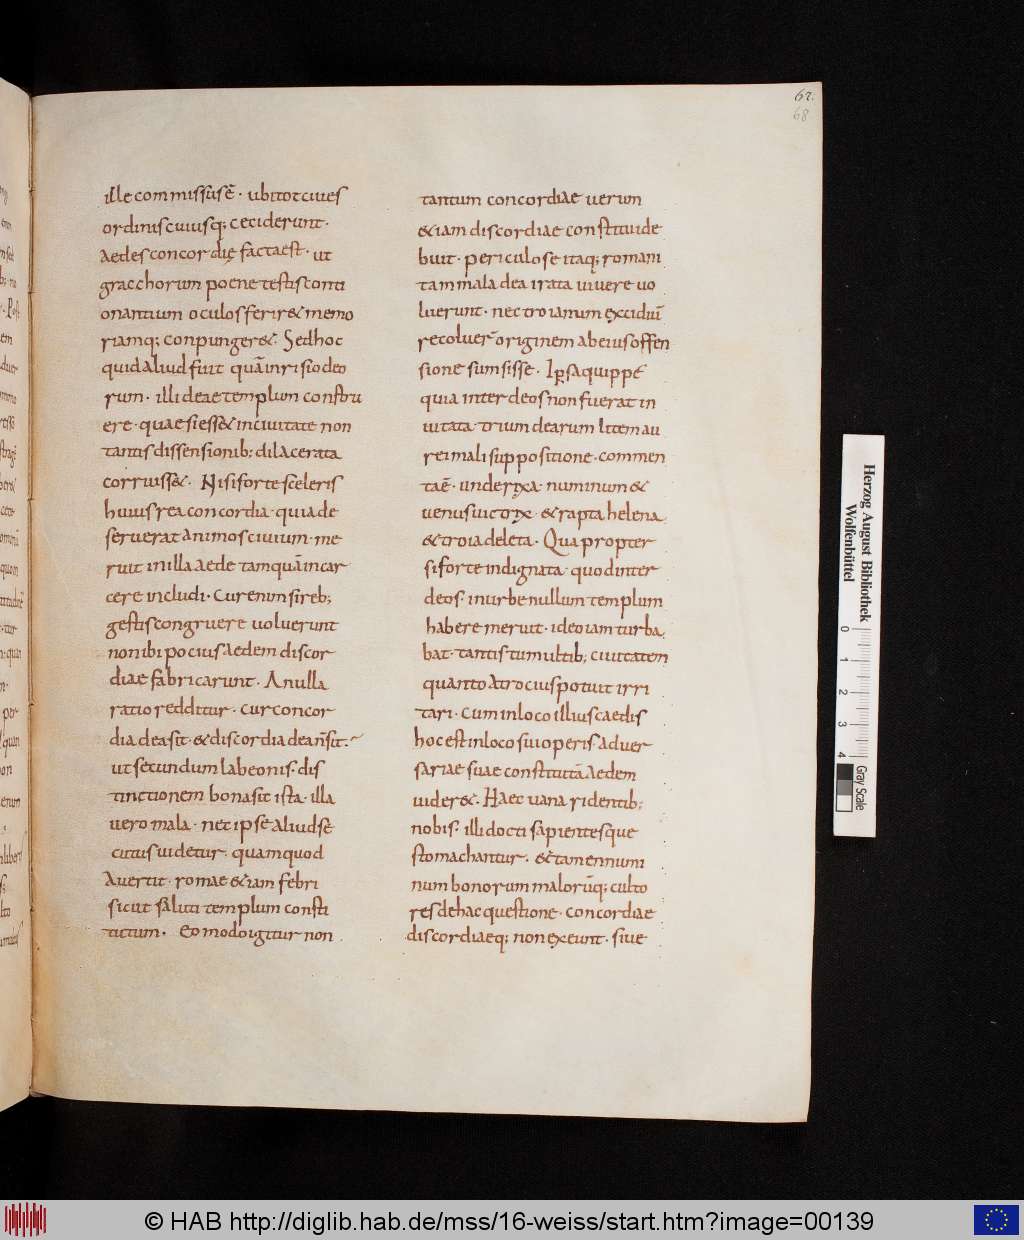 67.
68
ille commissus ē · ubi tot ciues
ordinis cuiusq; ceciderunt ·
Aedes concordię facta est · ut
gracchorum poene testis conti
onantium oculosferir& memo
riamq; conpunger& · Sed hoc
quid aliud fuit quā inrisio deo
rum · illi deae templum constru
ere · quae si ess& in ciuitate non
tantis dissensionib; dilacerata
corruiss& · Nisi forte sceleris
huius rea concordia · quia de
seruerat animos ciuium · me
ruit in illa aede tamquā in car
cere includi · Cur enim si reb;
gestis congruere uoluerunt
non ibi pocius aedem discor
diae fabricarunt · An ulla
ratio redditur · cur concor
dia dea sit · & discordia dea n̄ sit ·
ut secundum labeonis · dis
tinctionem bona sit ista · illa
uero mala · nec ipse aliud se
cutus uidetur · quam quod
Auertit · romae &iam febri
sicut saluti templum consti
tutum · Eo modo igitur non
tantum concordiae uerum
&iam discordiae constitui de
buit · periculose itaq; romani
tam mala dea irata uiuere uo
luerunt · nec troianum excidiū
recoluer̄ originem ab eius offen
sione sumsisse · Ipsa quippe
quia inter deos non fuerat in
uitata · trium dearum litem au
rei mali suppositione · commen
ta ē · unde rixa · numinum &
uenus uictrix · & rapta helena ·
& troia deleta · Quapropter
si forte indignata · quod inter
deos · in urbe nullum templum
habere meruit · ideo iam turba
bat · tantis tumultib; ciuitatem
quanto atrocius potuit irri
tari · cum in loco illius caedis
hoc est in loco sui operis aduer
sariae suae constitutā aedem
uider& · Haec uana ridentib;
nobis · illi docti sapientesque
stomachantur · & tamen numi
num bonorum malorūq; culto
res de hac questione · concordiae
discordiaeq; non exeunt · siue
Herzog August Bibliothek
Wolfenbüttel
0 1 2 3 4
Gray Scale
© HAB http://diglib.hab.de/mss/16-weiss/start.htm?image=00139